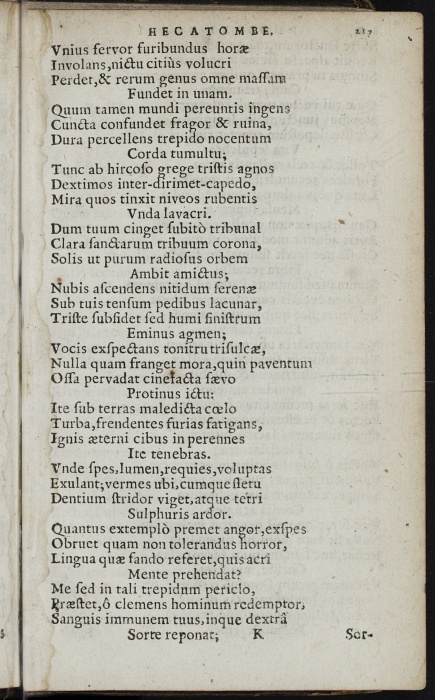 HECATOMBE. 217
Vnius fervor furibundus horæ
Involans, nictu citiùs volucri
Perdet, & rerum genus omne maſſam
Fundet in unam.
Quum tamen mundi pereuntis ingens
Cuncta confundet fragor & ruina,
Dura percellens trepido nocentum
Corda tumultu;
Tunc ab hircoſo grege triſtis agnos
Dextimos inter-dirimet-capedo,
Mira quos tinxit niveos rubentis
Vnda lavacri.
Dum tuum cinget ſubitò tribunal
Clara ſanctarum tribuum corona,
Solis ut purum radioſus orbem
Ambit amictus;
Nubis aſcendens nitidum ſerenæ
Sub tuis tenſum pedibus lacunar,
Triſte ſubſidet ſed humi ſiniſtrum
Eminus agmen;
Vocis exſpectans tonitru triſulcæ,
Nulla quam franget mora, quin paventum
Oſſa pervadat cinefacta ſævo
Protinus ictu:
Ite ſub terras maledicta cœlo
Turba, frendentes furias fatigans,
Ignis æterni cibus in perennes
Ite tenebras.
Vnde ſpes, lumen, requies, voluptas
Exulant; vermes ubi, cumque fletu
Dentium ſtridor viget, atque tetri
Sulphuris ardor.
Quantus extemplò premet angor, exſpes
Obruet quam non tolerandus horror,
Lingua quæ fando referet, quis acri
Mente prehendat?
Me ſed in tali trepidum periclo,
Præſtet, ô clemens hominum redemptor,
Sanguis immunem tuus, inque dextrâ
Sorte reponat; K Sor-